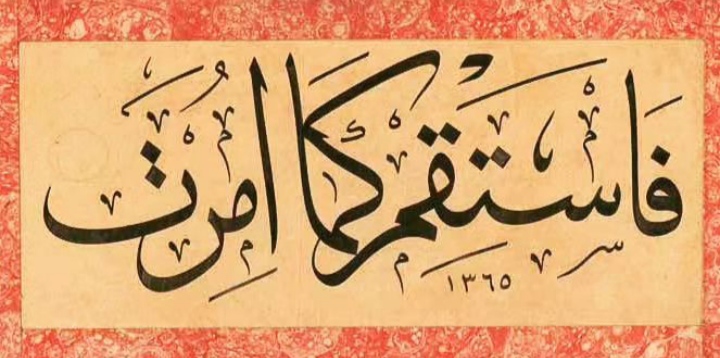 فَاسْتَقِمْ كَمَا اُمِرْتَ
١٣٦٥